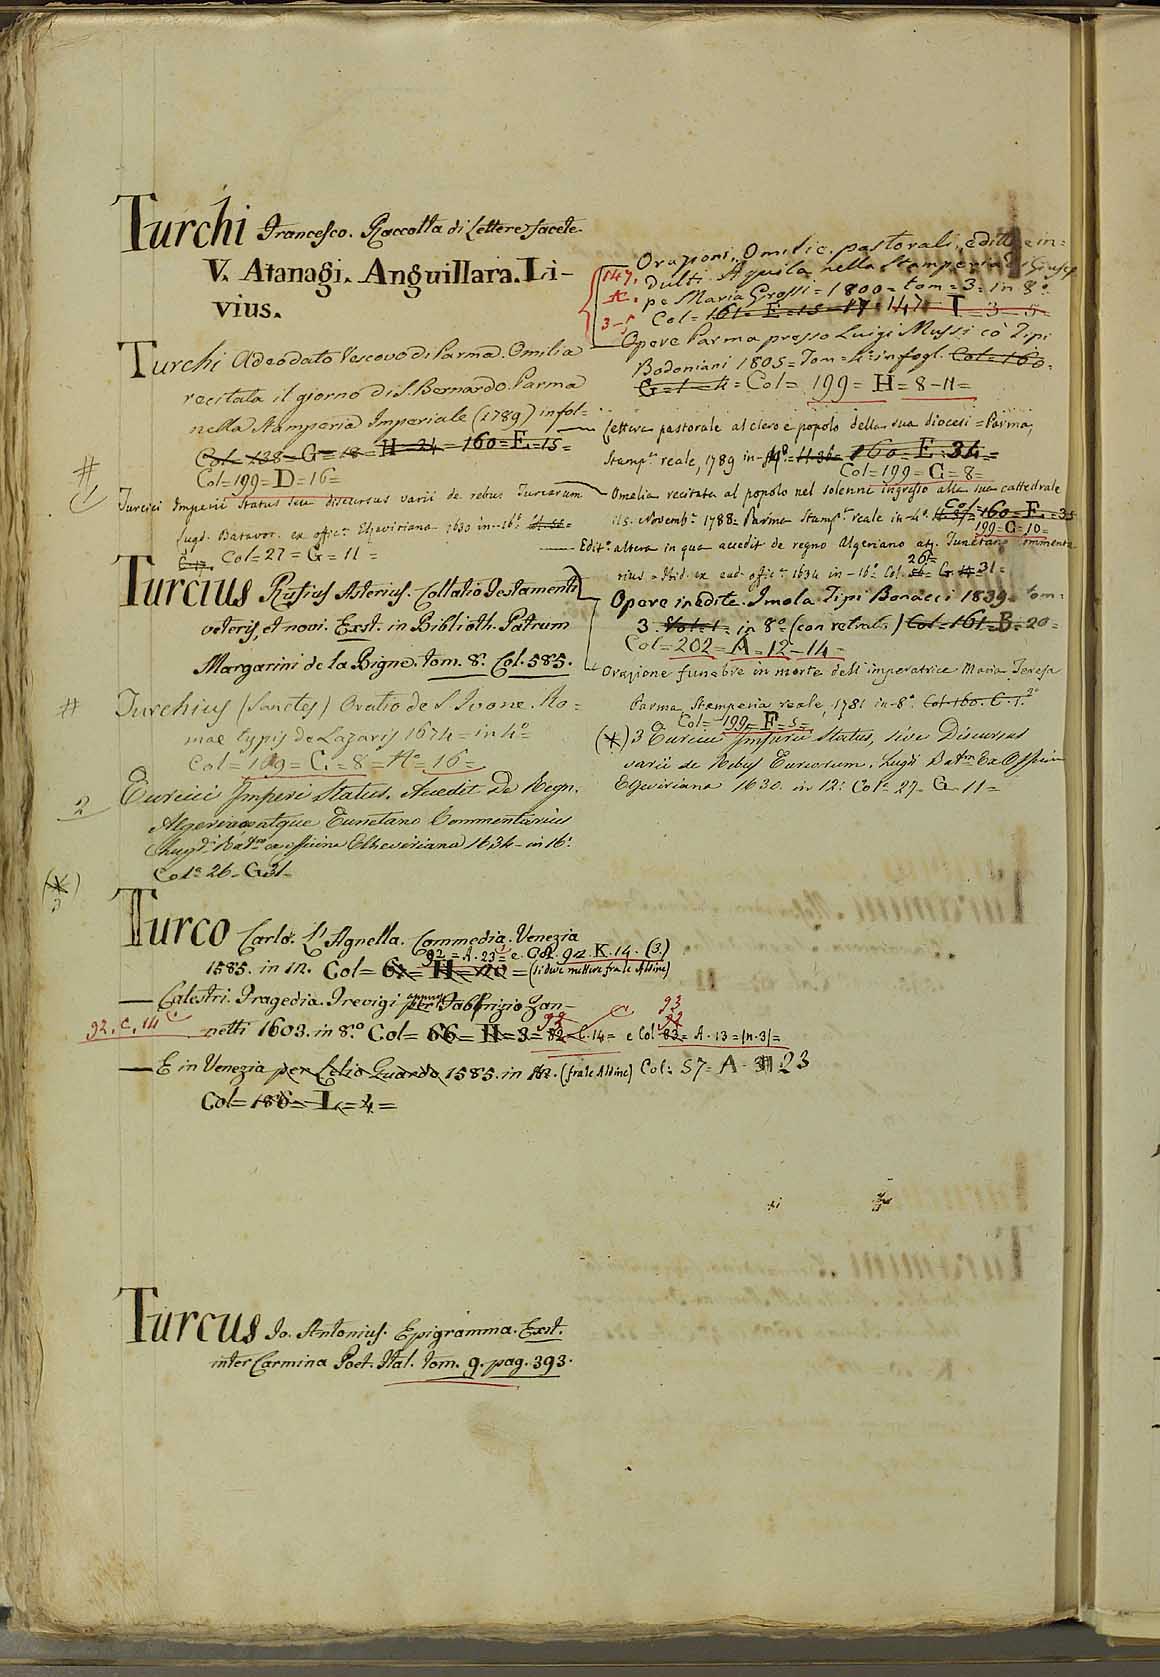 Turchi Francesco. Raccolta di Lettere facete.
V. Atanagi. Anguillara. Li-
vius.
Turchi Adeodato Vescovo di Parma. Omilia
recitata il giorno di S. Bernardo. Parma
nella Stamperia Imperiale (1789) in fol=
Col= 138=G=18=H=24=160=E=15=
Col=199=D=16=
#
1
Turcici Imperii Status seu discursus varii de rebus Turcarum
Lugd. Batavor. ex offic.ª Elzeviriana 1630 in-16.º
Col=27=G=11=
Turcius Rufius Asterius. Collatio Testamenti
veteris, et novi. Exst. in Biblioth. Patrum
Margarini de la Bigne. tom. 8. Col. 585.
#
Turchius (Sanctes) Oratio de S. Ivone. Ro=
mae typis de Lazaris 1674=in 4º
Col=169=C=8=Aº=16=
2
Turcici Imperi Status. Accedit De Regn.
Algeriano atque Tunetano Commentarius
Lugd. Bat.m ex officina Elzeviriana 1634-in 16.
Col= 26= G31-
(*)
3
Turco Carlo. L'Agnella. Commedia. Venezia
92=A.23= e Col. 92. K.14. (3)
1585. in 12. Col= 62= H=20= (si deve mettere fra le Aldine)
— Calestri. Tragedia. Trevigi appresso Fabbrizio Zan-
92. C. 14
92
93
netti 1603. in 8.º Col= 66= H=3= 82=C.14= e Col 83= A.13=(n.3)=
— E in Venezia per Lelio Guardo 1585. in 12. (fra le Aldine) Col: 57= A= 23
Col= 186= L=4=
Turcus Io. Antonius. Epigramma. Exst.
inter Carmina Poet. Ital. tom. 9. pag. 393.
Orazioni, Omilie, pastorali, editti e in=
dulti. Aquila nella Stamperia di Giusep
147.
A.
3-5
pe Maria Grossi=1800=tom=3=in 8º
Col=161=E=15=17=147=I=3=5=
— Opere Parma presso Luigi Mussi cò Tipi
Bodoniani 1805=Tom=4=in fogl. Col=160.
G=1=4= Col= 199= H=8-11=
— Lettera pastorale al clero e popolo della sua diocesi=Parma,
Stamp.ª reale, 1789 in-4º. 160=E=34=
Col=199=G=8=
Omelia recitata al popolo nel solenne ingresso alla sua cattedrale
li 5. Novemb. 1788= Parma Stamp.ª reale in-4º. Col=160=E=35
199=G=10=
— Edit.º altera in qua accedit de regno Algeriano atq. Tunetano Commenta
rius=Ibid. ex ead. offic.ª 1634 in-16º Col. 26= G 31=
Opere inedite. Imola Tipi Bonacci 1839. tom=
3. Vol. 1= in 8º (con retrat.) Col=161=B=20=
Col=202=A=12-14=
Orazione funebre in morte dell'imperatrice Maria Teresa
Parma Stamperia reale, 1781 in-8º Col 160. C. 1.
Col= 199= F=5=
(*) 3 Turcici Imperii Status, sive Discursus
varii de Rebus Turcorum. Lugd. Bat.m Ex Officin
Elzeviriana 1630. in 12: Col: 27= G 11=